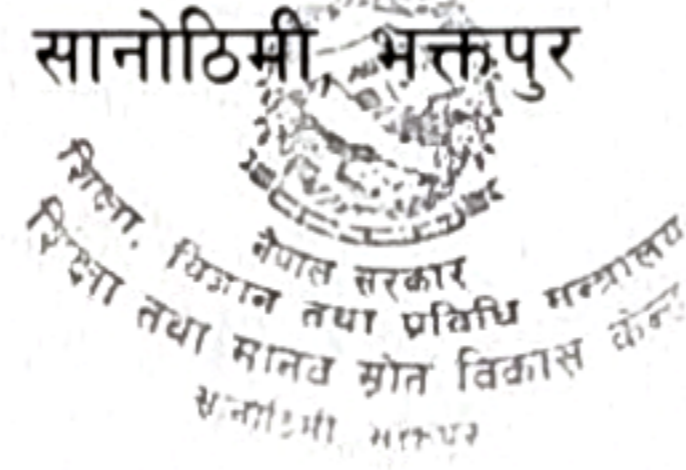 सानोठिमी, भक्तपुर
नेपाल सरकार
शिक्षा, विज्ञान तथा प्रविधि मन्त्रालय
शिक्षा तथा मानव स्रोत विकास केन्द्र
सानोठिमी भक्तपुर